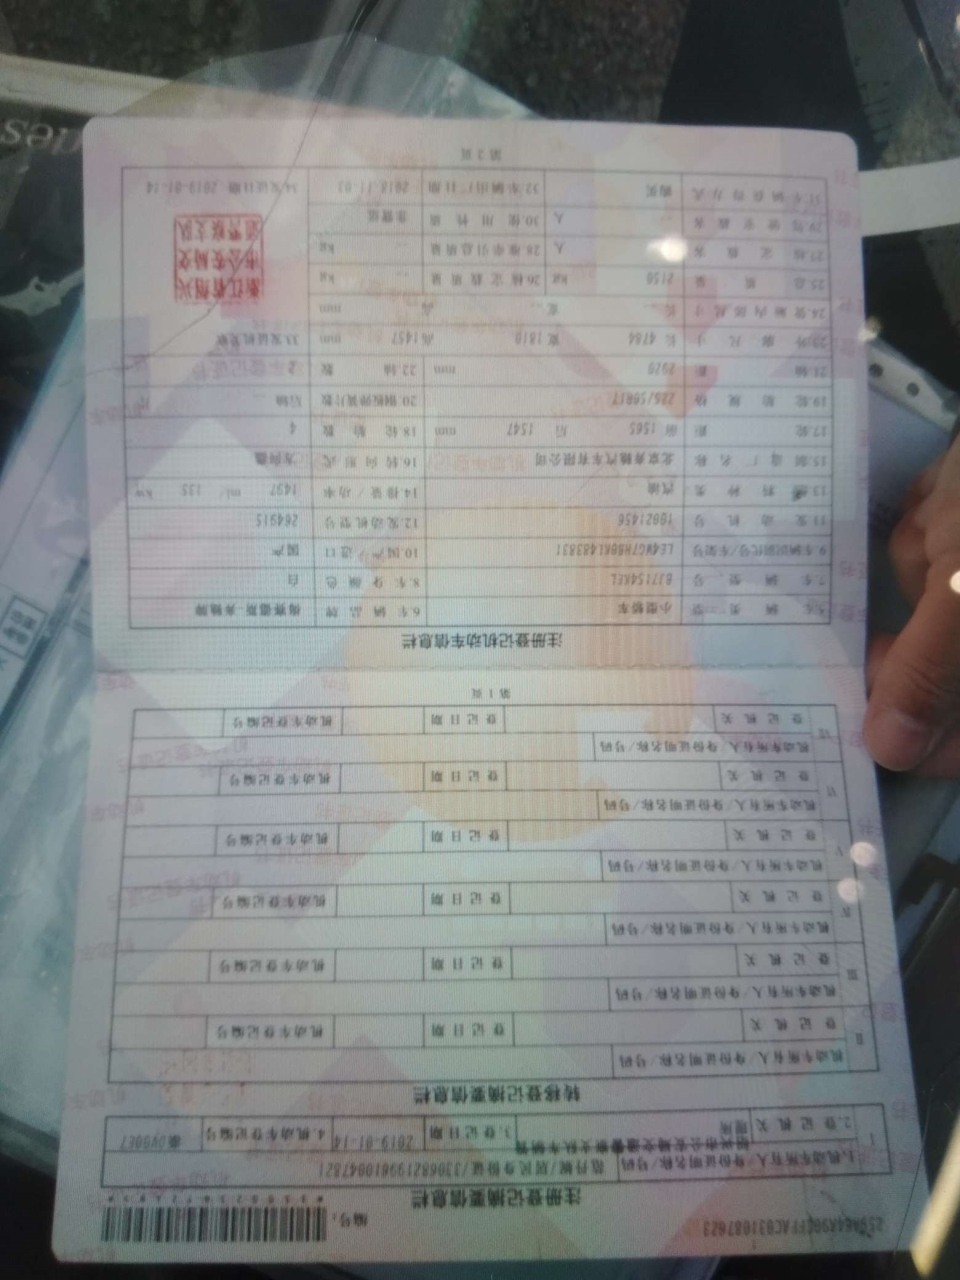 编号:
注册登记摘要信息栏
I 1.机动车所有人/身份证名称/号码
2.登记机关 3.登记日期 2019-01-14 4.机动车登记编号
转移登记摘要信息栏
II 机动车所有人/身份证明名称/号码
登记机关 登记日期 机动车登记编号
III 机动车所有人/身份证明名称/号码
登记机关 登记日期 机动车登记编号
IV 机动车所有人/身份证明名称/号码
登记机关 登记日期 机动车登记编号
V 机动车所有人/身份证明名称/号码
登记机关 登记日期 机动车登记编号
VI 机动车所有人/身份证明名称/号码
登记机关 登记日期 机动车登记编号
VII 机动车所有人/身份证明名称/号码
登记机关 登记日期 机动车登记编号
第1页
注册登记机动车信息栏
5.车辆类型 小型轿车 6.车辆品牌 梅赛德斯-奔驰牌
7.车辆型号 8.车身颜色 白
9.车辆识别代号/车架号 10.国产/进口 国产
11.发动机号 12.发动机型号 264915
13.燃料种类 汽油 14.排量/功率 1497 ml/ 135 kw
15.制造厂名称 北京奔驰汽车有限公司 16.转向形式 方向盘
17.轮距 前 1565 后 1547 mm 18.轮胎数 4
19.轮胎规格 225/50R17 20.钢板弹簧片数 后轴
21.轴距 2920 mm 22.轴数 2
23.外廓尺寸 长 4784 宽 1810 高 1457 mm 33.发证机关章
24.货厢内部尺寸 长 宽 高 mm
25.总质量 2150 kg 26.核定载质量 kg
27.核定载客 人 28.准牵引总质量 kg
29.驾驶室载客 人 30.使用性质 非营运
31.车辆获得方式 购买 32.车辆出厂日期 2018-11-03 34.发证日期 2019-01-14
浙江省绍兴
市公安局交
通警察支队
第2页